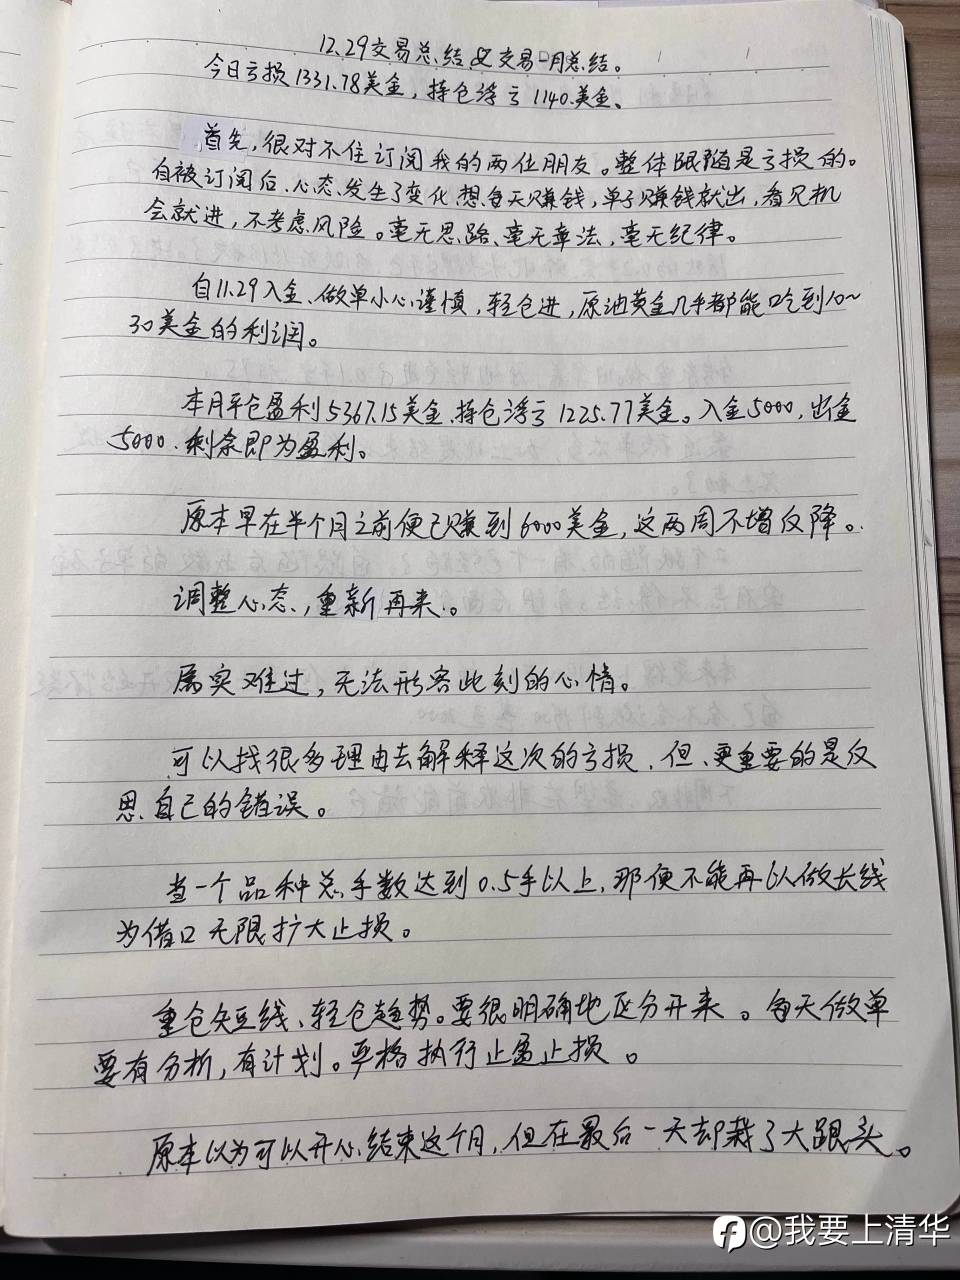 12.29交易总结&交易一月总结。
今日亏损1331.78美金，持仓浮亏1140美金、
首先，很对不住订阅我的两位朋友。整体跟随是亏损的。
自被订阅后、心态发生了变化、想每天赚钱，单子赚钱就出，看见机
会就进，不考虑风险。毫无思路、毫无章法，毫无纪律。
自11.29入金、做单小心谨慎，轻仓进，原油黄金几乎都能吃到10～
30美金的利润。
本月平仓盈利5367.15美金、持仓浮亏1225.77美金。入金5000，出金
5000、剩余即为盈利。
原本早在半个月之前便已赚到6000美金，这两周不增反降。
调整心态，重新再来。
属实难过，无法形容此刻的心情。
可以找很多理由去解释这次的亏损，但、更重要的是反
思自己的错误。
当一个品种总手数达到0.5手以上，那便不能再以做长线
为借口无限扩大止损。
重仓短线、轻仓趋势。要很明确地区分开来。每天做单
要有分析，有计划。严格执行止盈止损。
原本以为可以开心结束这个月，但在最后一天却栽了大跟头。
@我要上清华